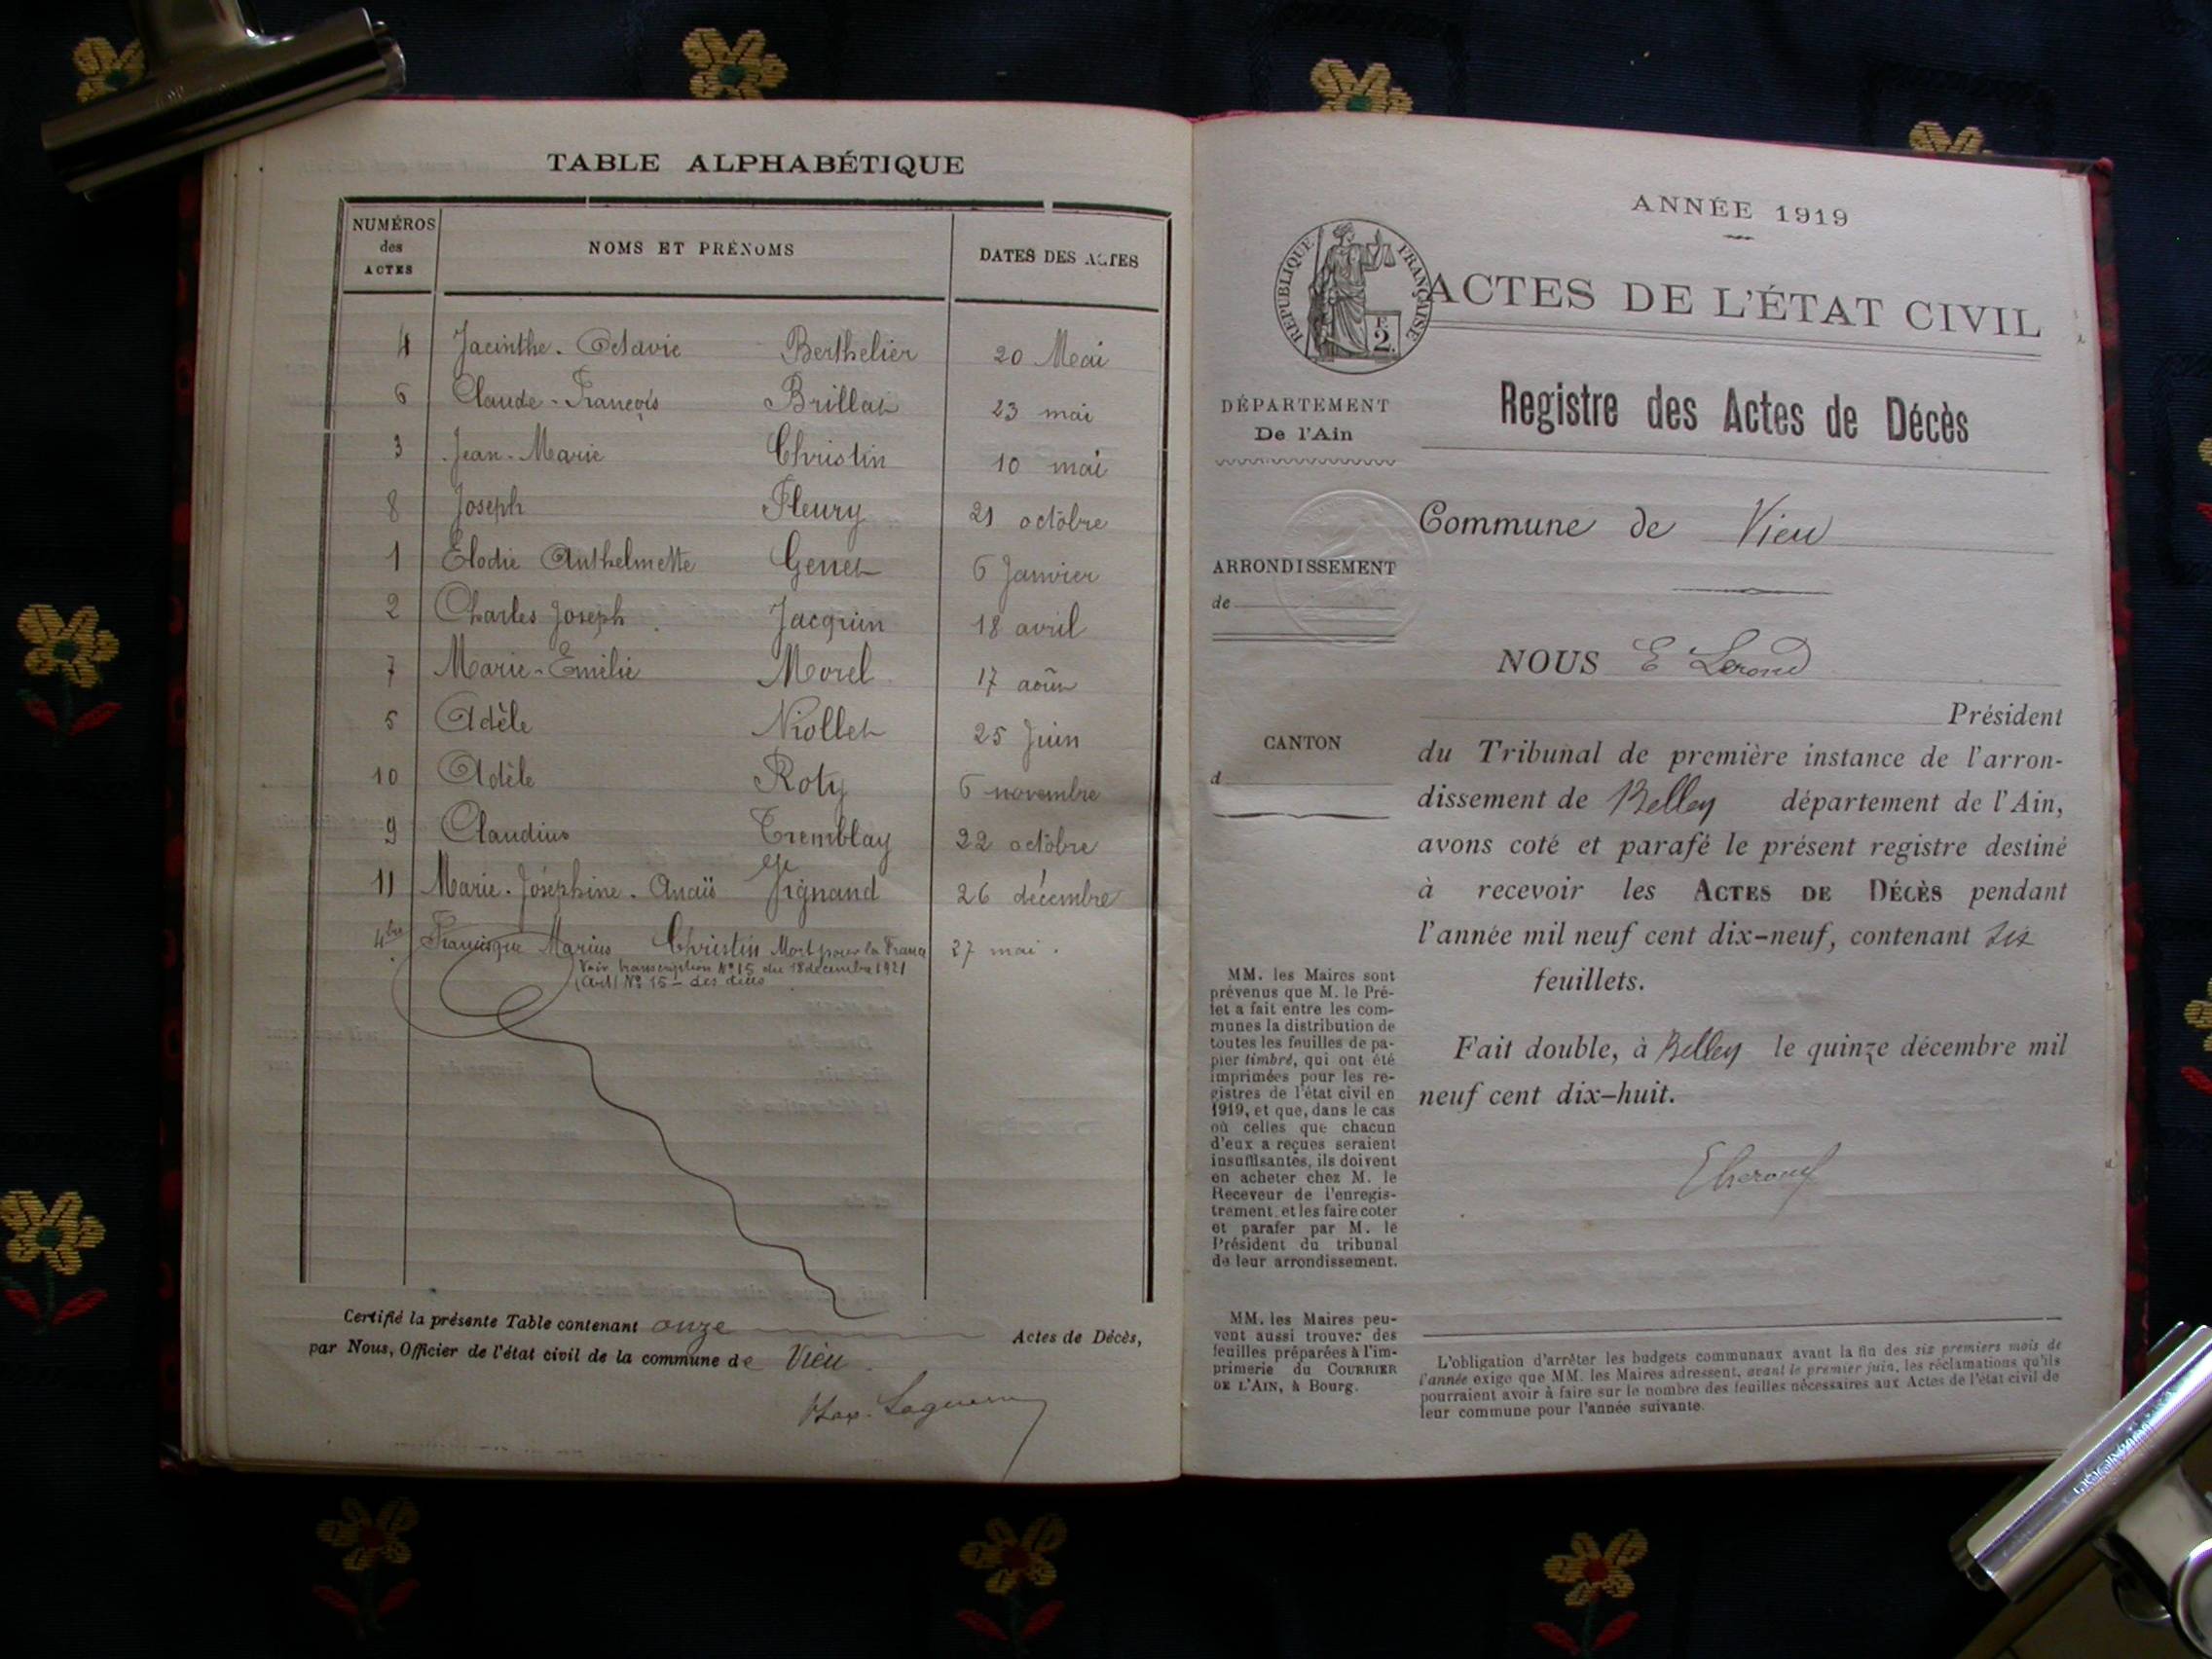 TABLE ALPHABÉTIQUE
NUMÉROS des ACTES
NOMS ET PRÉNOMS
DATES DES ACTES
4 Jacinthe-Octavie Berthelier 20 Mai
6 Claude-François Brillat 23 mai
3 Jean-Marie Christin 10 mai
8 Joseph Fleury 21 octobre
1 Elodie Anthelmette Genet 6 Janvier
2 Charles Joseph Jacquin 18 avril
7 Marie-Emélie Morel 17 août
5 Adèle Niollet 25 Juin
10 Adèle Roty 6 novembre
9 Claudius Tremblay 22 octobre
11 Marie-Joséphine-Anaïs Gignand 26 décembre
4bis Francisque Marius Christin Mort pour la France 27 mai.
Voir transcription N° 15 du 18 décembre 1921
N° 15 - des décès
Certifié la présente Table contenant onze Actes de Décès,
par Nous, Officier de l'état civil de la commune de Vieu
ANNÉE 1919
RÉPUBLIQUE FRANÇAISE
2
ACTES DE L'ÉTAT CIVIL
DÉPARTEMENT
De l'Ain
Registre des Actes de Décès
Commune de Vieu
ARRONDISSEMENT
de
NOUS E
Président
CANTON
d
du Tribunal de première instance de l'arron-
dissement de Belley département de l'Ain,
avons coté et parafé le présent registre destiné
à recevoir les ACTES DE DÉCÈS pendant
l'année mil neuf cent dix-neuf, contenant six
feuillets.
Fait double, à Belley le quinze décembre mil
neuf cent dix-huit.
MM. les Maires sont
prévenus que M. le Pré-
fet a fait entre les com-
munes la distribution de
toutes les feuilles de pa-
pier timbré, qui ont été
imprimées pour les re-
gistres de l'état civil en
1919, et que, dans le cas
où celles que chacun
d'eux a reçues seraient
insuffisantes, ils doivent
en acheter chez M. le
Receveur de l'enregis-
trement, et les faire coter
et parafer par M. le
Président du tribunal
de leur arrondissement.
MM. les Maires peu-
vent aussi trouver des
feuilles préparées à l'im-
primerie du COURRIER
DE L'AIN, à Bourg.
L'obligation d'arrêter les budgets communaux avant la fin des six premiers mois de
l'année exige que MM. les Maires adressent, avant le premier juin, les réclamations qu'ils
pourraient avoir à faire sur le nombre des feuilles nécessaires aux Actes de l'état civil de
leur commune pour l'année suivante.